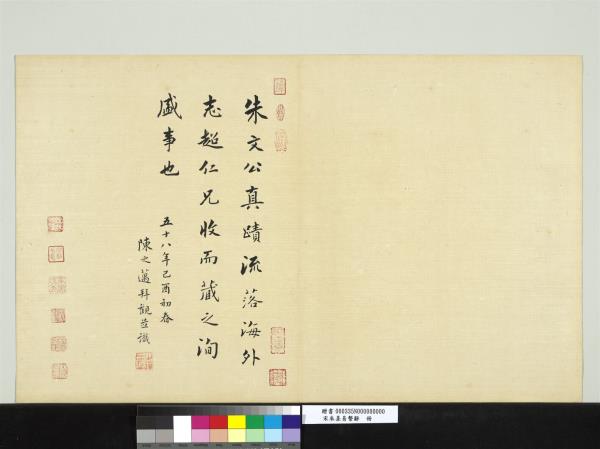 朱文公真蹟流落海外
志超仁兄收而藏之洵
盛事也
五十八年己酉初春
陳之邁拜觀並識
贈書 000335N000000000
宋朱熹易繫辭 冊